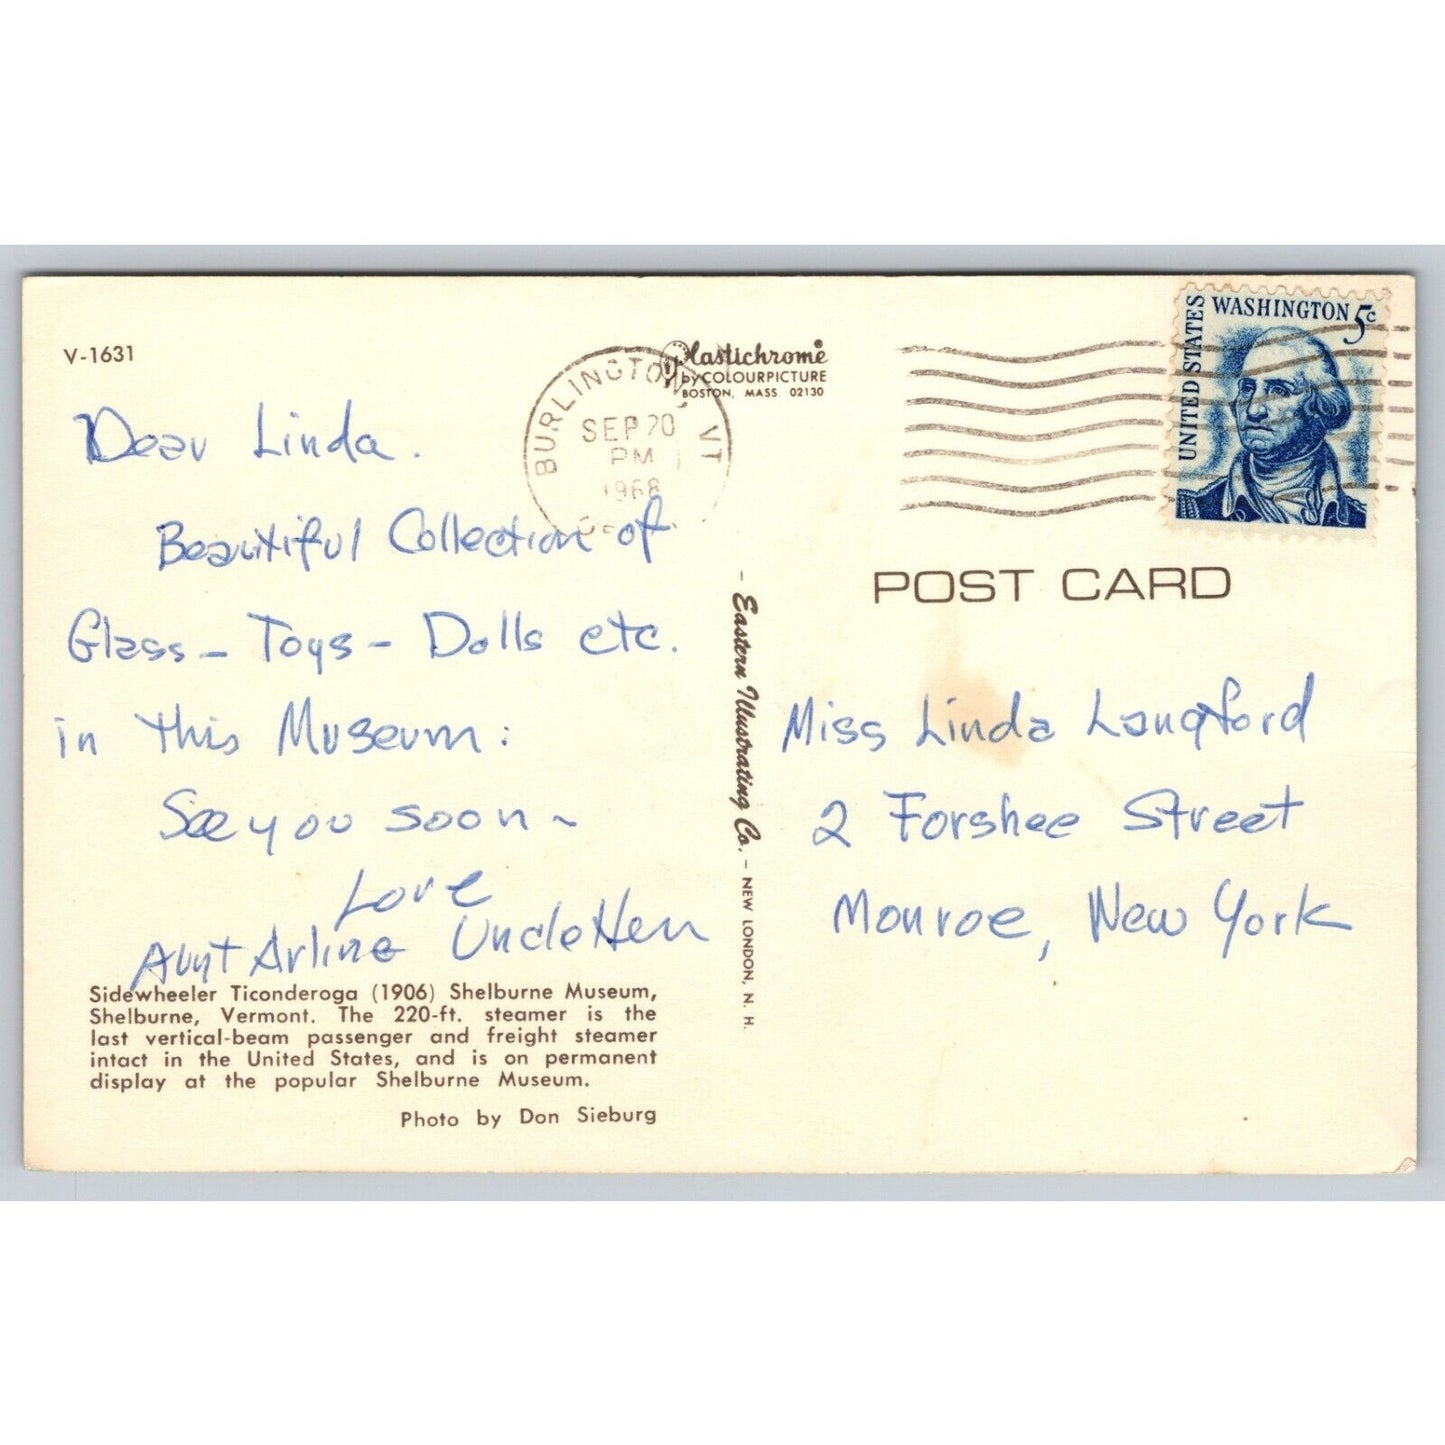 V-1631
Plastichrome®
by COLOURPICTURE
BOSTON, MASS. 02130
BURLINGTON, VT
SEP 20
PM
1968
UNITED STATES
WASHINGTON 5c
Dear Linda.
Beautiful Collection of
Glass - Toys - Dolls etc.
in this Museum:
See you soon ~
Love
Aunt Arline Uncle Hen
Sidewheeler Ticonderoga (1906) Shelburne Museum,
Shelburne, Vermont. The 220-ft. steamer is the
last vertical-beam passenger and freight steamer
intact in the United States, and is on permanent
display at the popular Shelburne Museum.
Photo by Don Sieburg
- Eastern Illustrating Co. - NEW LONDON, N. H.
POST CARD
Miss Linda Langford
2 Forshee Street
Monroe, New York